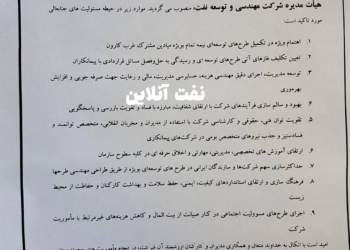 هیأت مدیره شرکت مهندسی و توسعه نفت» منصوب می گردید. موارد زیر در حیطه مسئولیت های جنابعالی
مورد تاکید است:
۱. اهتمام ویژه در تکمیل طرح‌های توسعه‌ای نیمه تمام بویژه میادین مشترک غرب کارون
۲. تعیین تکلیف فازهای آتی طرح‌های توسعه ای و رسیدگی به حل‌وفصل مسائل قراردادی با پیمانکاران
۳. توسعه مدیریت، اجرای دقیق مهندسی هزینه، حسابرسی مدیریت، مالی و رعایت جهت صرفه جویی و افزایش
بهره‌وری
نفت آنلاین
۴. بهبود و سالم سازی فرآیندهای شرکت با ارتقای شفافیت، مبارزه با فساد و تقویت بازرسی و پاسخگویی
۵. تقویت توان فنی، حقوقی و کارشناسی شرکت با استفاده از مدیران و مجریان انقلابی، متخصص توانمند و
فسادستیز و جذب نیروهای متخصص بومی در شرکت‌های پیمانکاری
۶. ارتقای آموزش های تخصصی، مدیریتی، مهارتی و اخلاق حرفه ای در کلیه سطوح سازمان
۷. حداکثرسازی سهم شرکت‌ها و سازندگان ایرانی در طرح های توسعه‌ای بویژه از طریق طراحی مهندسی طرحها
۸. فرهنگ سازی و ارتقای استانداردهای کیفیت، ایمنی، حفظ سلامت و بهداشت کارکنان و حفاظت از محیط
زیست
۹. اجرای طرح‌های مسوولیت اجتماعی در کنار صیانت از بیت المال و کاهش هزینه‌های غیرمرتبط با مأموریت
شرکت
امید است با اتکال به خداوند متعال و همکاری مدیران و کارکنان ارزشمند آن شرکت، در انجام مأموریت‌های